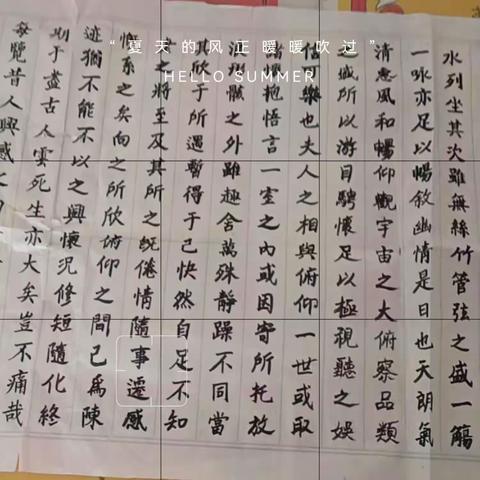 “夏天的风正暖暖吹过”
HELLO SUMMER
水列坐其次雖無絲竹管弦之盛一觴
一咏亦足以暢敘幽情是日也天朗氣
清惠風和暢仰觀宇宙之大俯察品類
之盛所以游目騁懷足以極視聽之娛
信可樂也夫人之相與俯仰一世或取
諸懷抱悟言一室之內或因寄所托放
浪形骸之外雖趣舍萬殊靜躁不同當
其欣于所遇暫得于己快然自足不知
之將至及其所之既倦情隨事遷感
慨系之矣向之所欣俯仰之間已為陳
迹猶不能不以之興懷況修短隨化終
期于盡古人云死生亦大矣豈不痛哉
每覽昔人興感之